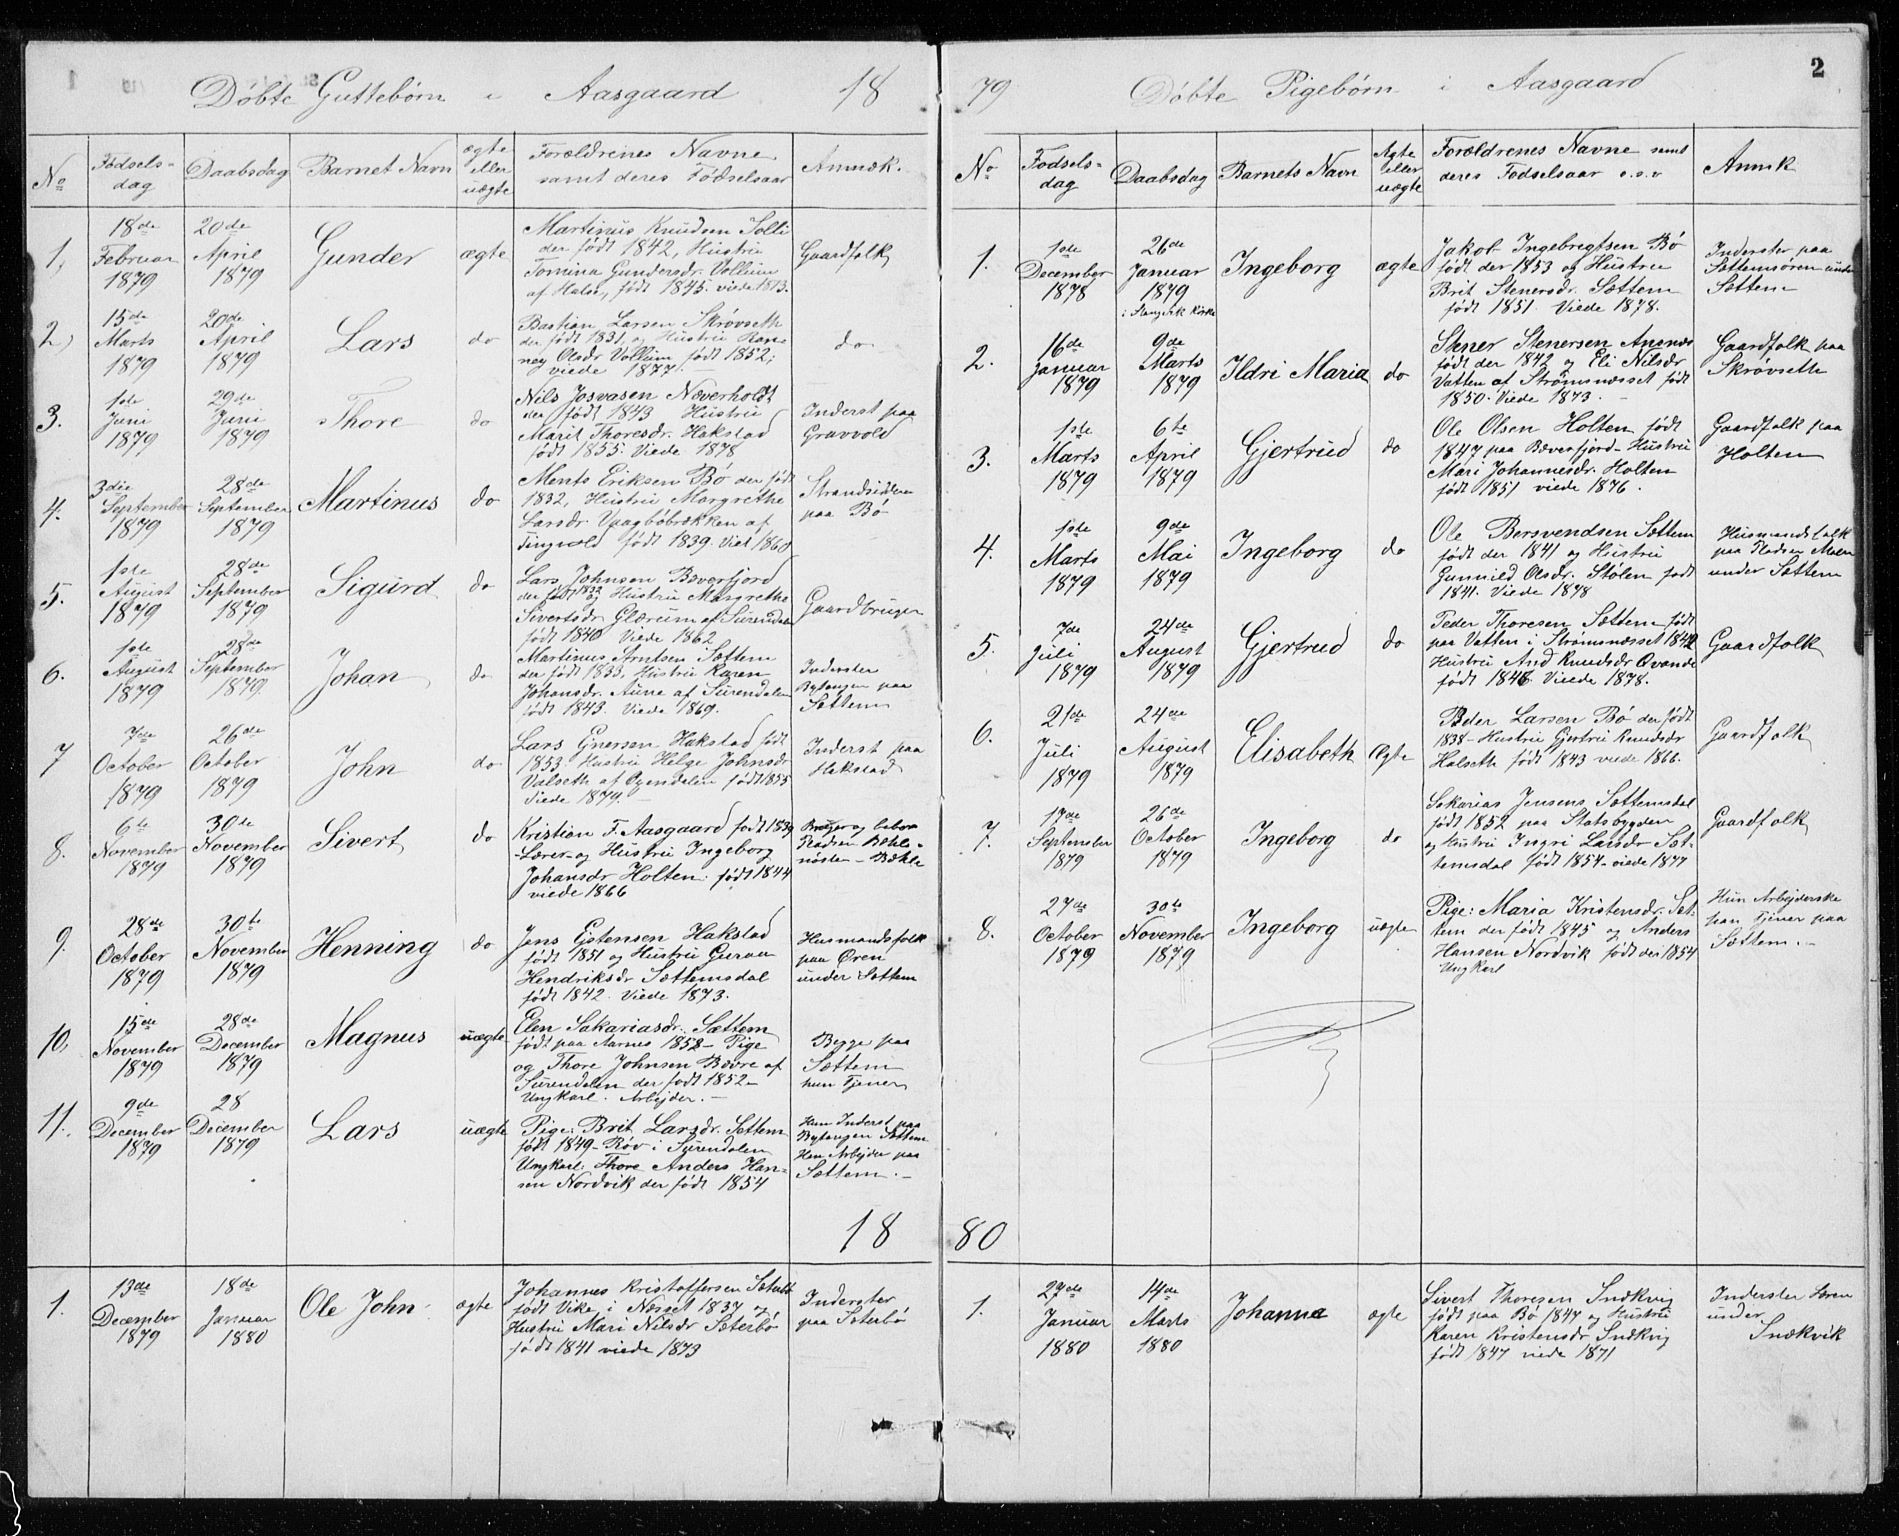 Døbte Guttebørn i Aasgaard 18
No Fødselsdag Daabsdag Barnet Navn ægte eller uægte Forældrenes Navne samt deres Fødselsaar Anmæk.
1, 18de Februar 1879 20de April 1879 Gunder ægte
Martinus Knudsen Solli
der født 1842, Hustru
Tomina Gundersdr. Vollum
af Halse, født 1845. viede 1873.
Gaardfolk
2, 15de Marts 1879 20de April 1879 Lars do
Bastian Larsen Skrøvseth
der født 1831, og Hustru Ran-
ney Olsdr Vollum født 1852;
viede 1877. —
do
3. 1ste Juni 1879 29de Juni 1879 Thore do
Nils Josvasen Næverholdt
der født 1843 Hustru
Marit Thoresdr. Hakstad
født 1855. Viede 1878
Inderst paa
Gravvold
4. 3die September 1879 28de September 1879 Martinus do
Ments Eriksen Bø der født
1832, Hustru Margrethe
Larsdr.
Tingvold født 1839. Viet 1860
Strandsiddere
paa Bø
5. 1ste August 1879 28de September 1879 Sigurd do
Lars Johnsen Bæverfjord
der født 1832 og Hustru Margrethe
Sivertsdr. Glærum af Surendalen
født 1840 Viede 1862
Gaardbruger
6. 1ste August 1879 28de September 1879 Johan do
Martinus Arntsen Sættem
der født 1833, Hustru Karen
Johansdr. Aune af Surendalen
født 1843. Viede 1869.
Inderster
Bytangen paa
Sættem
7 7de October 1879 26de October 1879 John do
Lars Hakstad født
1853 Hustru Helge Johnsdr
Valseth af født 1855
Viede 1879. —
Inderst paa
Hakstad
8. 6te November 1879 30de November 1879 Sivert do
Kristian F. Aasgaard født 1839
-Lærer- og Hustru Ingeborg
Johansdr Holten. født 1844
viede 1866
Bruger og bebor
Pladsen
9. 28de October 1879 30te November 1879 Henning do
Jens Estensen Hakstad
født 1851 og Hustru Guraa
Hendriksdr Sættemsdal
født 1842. Viede 1873.
Husmandsfolk
paa Øren
under Sættem
10, 15de November 1879 28de December 1879 Magnus uægte
Elen Sakariasdr. Sættem
født paa Aarnes 1852 - Pige
og Thore Johnsen Bøvre af
Surendalen der født 1852 -
Ungkarl. Arbejder. —
Begge paa
Sættem
hun Tjener
11. 9de December 1879 28 December 1879 Lars uægte
Pige: Brit Larsdr. Sættem
født 1849 - Røv i Surendalen
Ungkarl: Thore Anders Han-
sen Nordvik der født 1854
Hun Inderst paa
Bytangen Sættem
Han Arbejder paa
Sættem. —
18
1. 13de December 1879 18de Januar 1880 Ole John ægte
Johannes Kristoffersen
født Vike i Næsset 1837 og
Hustru Mari Nilsdr Sæterbø
født 1841 viede 1873
Inderster
paa Sæterbø
2
79 Døbte Pigebørn i Aasgaard
No Fødselsdag Daabsdag Barnets Navn Ægte eller uægte Forældrenes Navne samt deres Fødselsaar o.s.v Anmk
1. 1ste December 1878 26de Januar 1879 i Stangvik Kirke Ingeborg ægte
Jakob Ingebregtsen Bø
født der 1853 og Hustru
Brit Stenersdr. Sættem
født 1851. Viede 1878.
Inderster paa
Sættemsøren under
Sættem
2. 16de Januar 1879 9de Marts 1879 Ildri Maria do
Stener Stenersen Ansnæs
født der 1842 og Eli Nilsdr
Vatten af Strømsnæsset født
1850. Viede 1873. —
Gaardfolk paa
Skrøvseth
3. 1ste Marts 1879 6te April 1879 Gjertrud do
Ole Olsen Holten født
1847 paa Bæverfjord - Hustru
Mari Johannesdr. Holten
født 1851 viede 1876.
Gaardfolk paa
Holten
4. 1ste Marts 1879 9de Mai 1879 Ingeborg do
Ole Bersvendsen Sættem
født der 1841 og Hustru
Gunnild Olsdr. Stølen født
1841. Viede 1878
Husmandsfolk
paa Pladsen Moen
under Sættem
5. 7de Juli 1879 24de August 1879 Gjertrud do
Peder Thoresen Sættem født
paa Vatten i Strømsnæsset 1842
Hustru And Knudsdr Qvande
født 1846 Viede 1878.
Gaardfolk
6. 21de Juli 1879 24de August 1879 Elisabeth Ægte
Peder Larsen Bø der født
1838 - Hustru Gjertru Knudsdr
Halseth født 1843 viede 1866.
Gaardfolk
7. 17de September 1879 26de October 1879 Ingeborg do
Sakarias Jensens Sættemsdal
født 1852 paa Statsbygden
og Hustru Ingri Larsdr Sæt-
temsdal født 1854 - viede 1877
Gaardfolk
8. 27de October 1879 30te November 1879 Ingeborg uægte
Pige: Maria Kristensdr. Sæt-
tem der født 1845 og Anders
Hansen Nordvik født der 1854
Ungkarl
Hun Arbejderske
han Tjener paa
Sættem. —
80
1. 27de Januar 1880 14de Marts 1880 Johanna ægte
Sivert Thoresen Snækvig
født paa Bø 1847 og Hustru
Karen Kristensdr Snækvig
født 1847 viede 1871
Inderster Søren
under
Snækvik